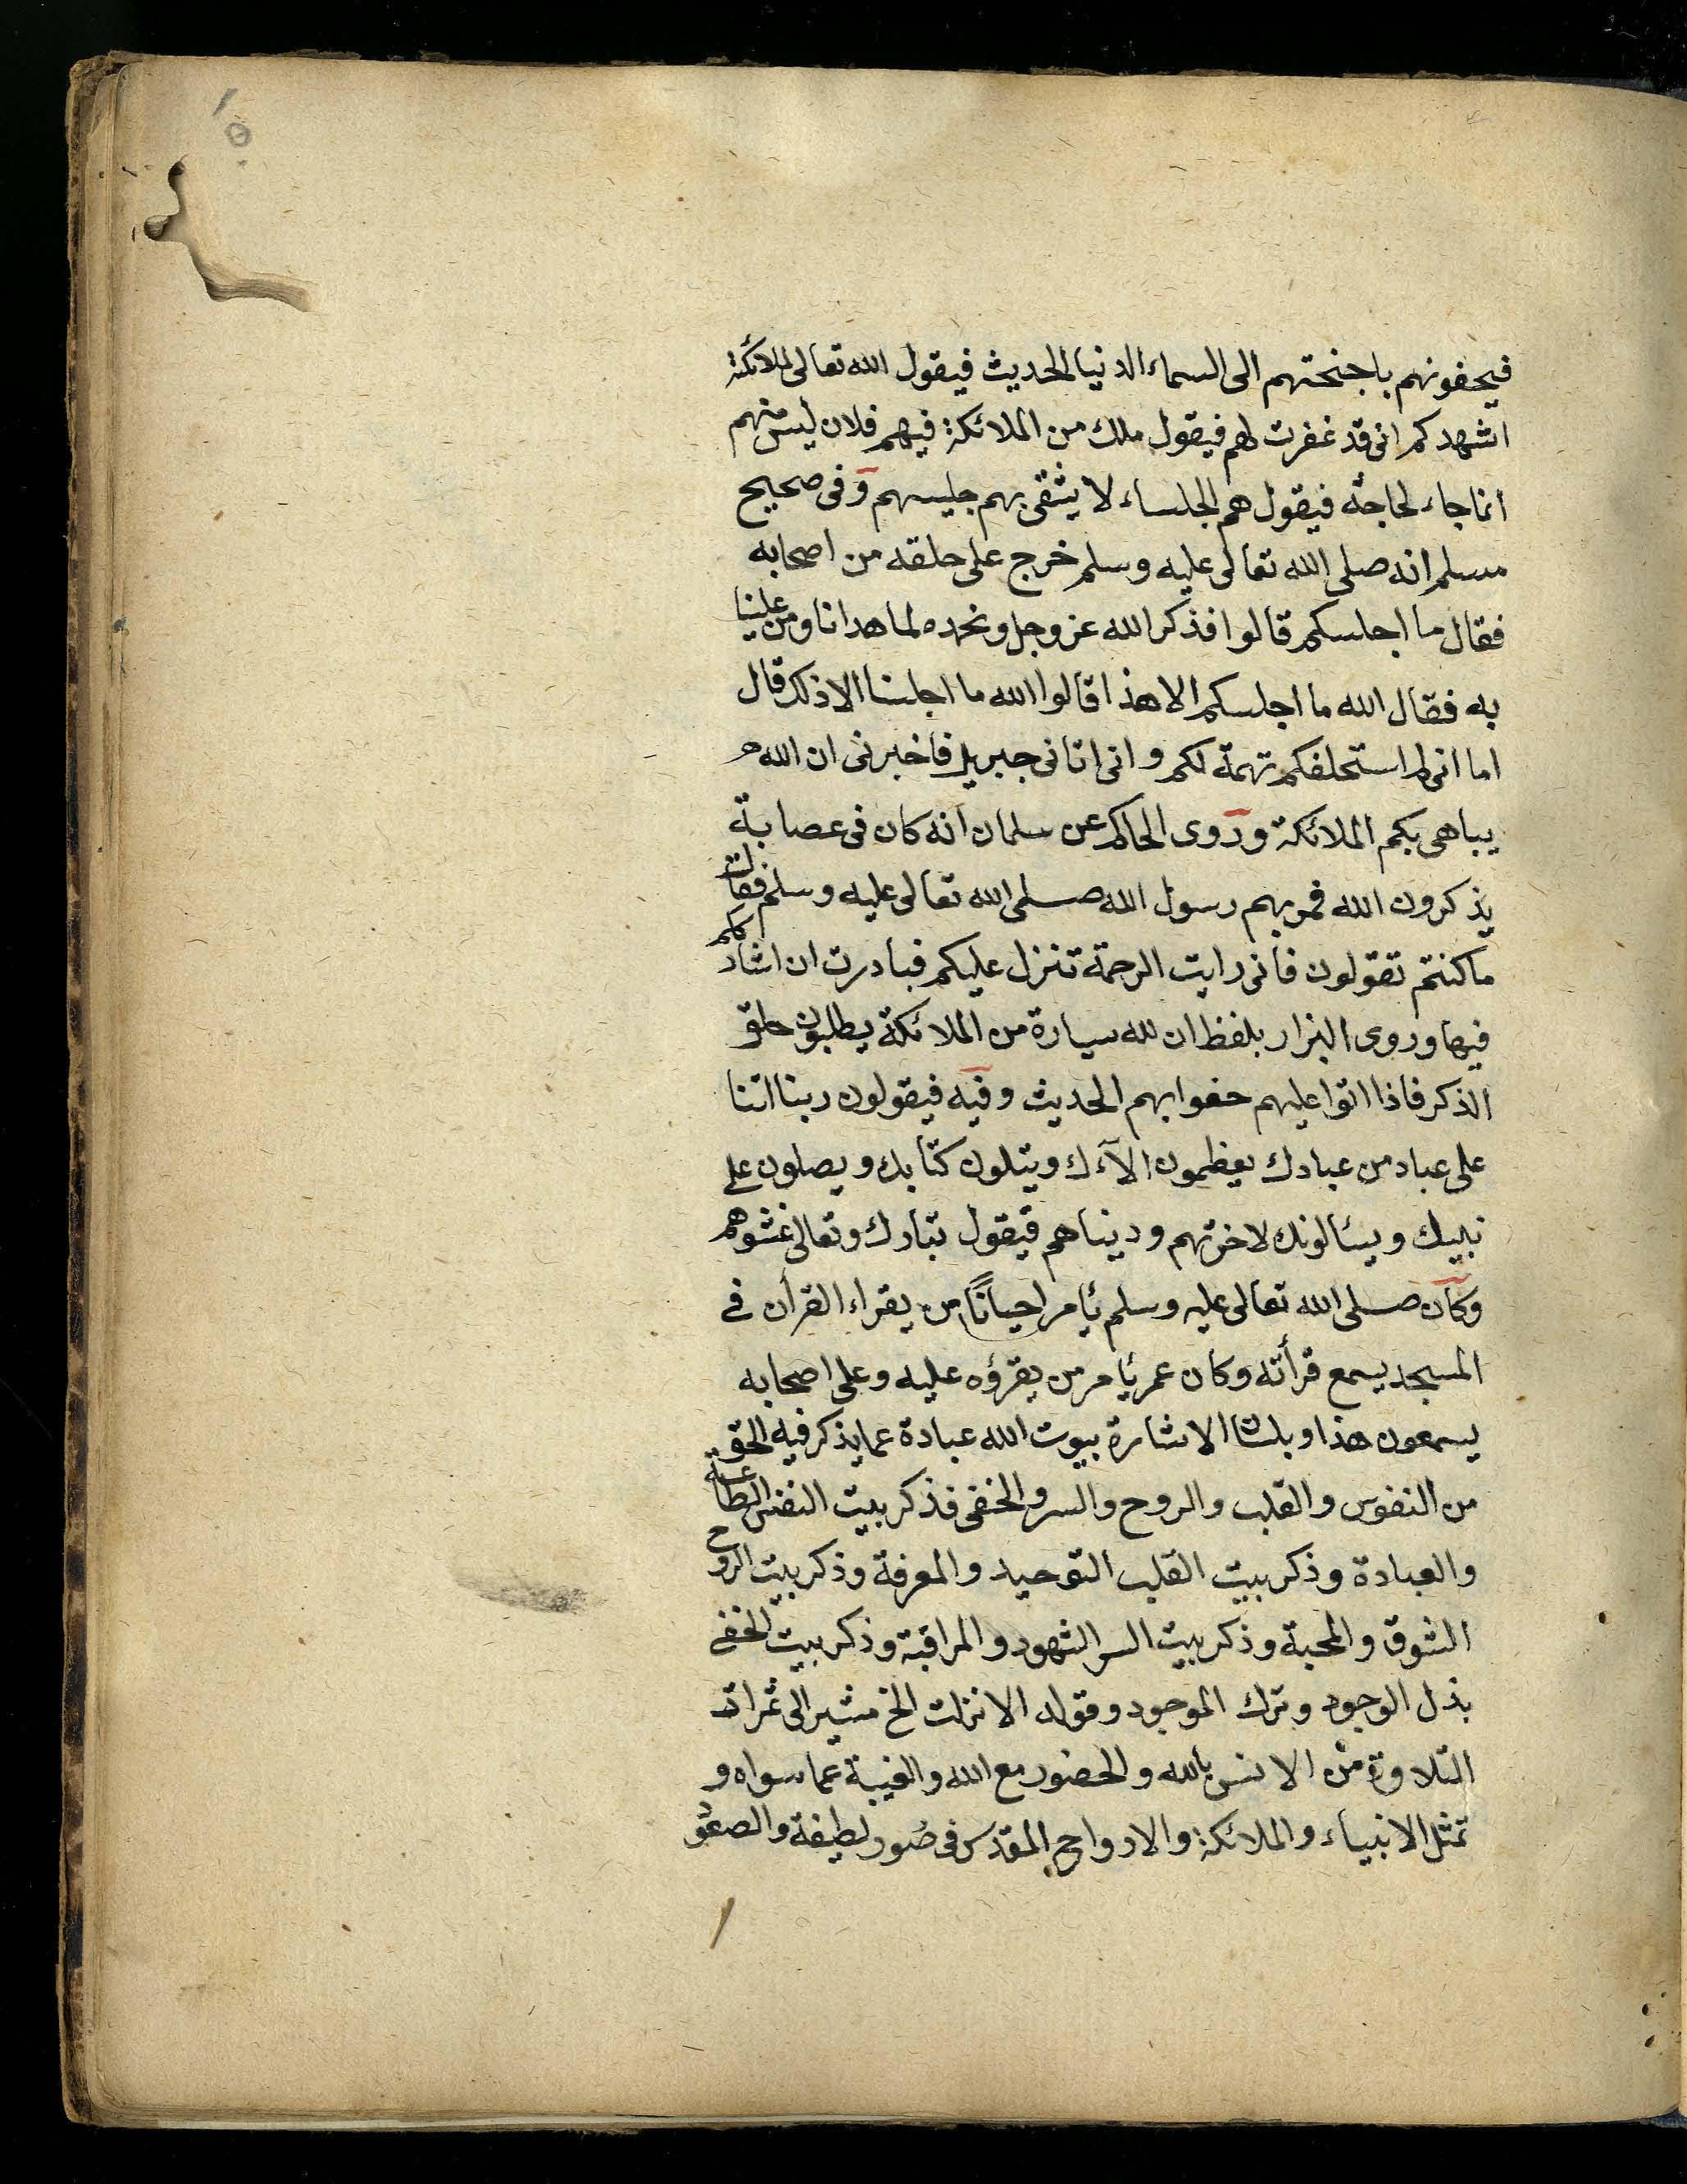 ١٥
فيحفونهم باجنحتهم الى السماء الدنيا الحديث فيقول الله تعالى لملائكة
اشهدكم انى قد غفرت لهم فيقول ملك من الملائكة فيهم فلان ليس منهم
انما جاء لحاجة فيقول هم الجلساء لا يشقى بهم جليسهم وفى صحيح
مسلم انه صلى الله تعالى عليه وسلم خرج على حلقه من اصحابه
فقال ما اجلسكم قالوا فذكر الله عز وجل ونحمده لما هدانا ومن علينا
به فقال الله ما اجلسكم الا هذا قالوا الله ما اجلسنا الا ذلك قال
اما انى لم استحلفكم تهمة لكم وانى اتانى جبريل فاخبرنى ان الله
يباهى بكم الملائكة وروى الحاكم عن سلمان انه كان فى عصابة
يذكرون الله فمر بهم رسول الله صلى الله تعالى عليه وسلم فقال
ما كنتم تقولون فانى رايت الرحمة تنزل عليكم فبادرت ان اشارككم
فيها وروى البزار بلفظ ان لله سيارة من الملائكة يطلبون حلق
الذكر فاذا اتوا عليهم حفوا بهم الحديث وفيه فيقولون ربنا اتنا
على عباد من عبادك يعظمون الآءك ويتلون كتابك ويصلون على
نبيك ويسئالونك لاخرتهم ودنياهم فيقول تبارك وتعالى غشوهم
وكان صلى الله تعالى عليه وسلم يأمر احيانًا من يقراء القرأن فى
المسجد يسمع قرأته وكان عمر يأمر من يقرؤه عليه وعلى اصحابه
يسمعون هذا وبلسان الاشارة بيوت الله عبادة عما يذكر فيه الحق
من النفوس والقلب والروح والسر والخفى فذكر بيت النفس الطاعة
والعبادة وذكر بيت القلب التوحيد والمعرفة وذكر بيت الروح
الشوق والمحبة وذكر بيت السر الشهود والمراقبة وذكر بيت الخفى
بذل الوجود وترك الموجود وقوله الا نزلت الخ مشير الى ثمرات
التلاوة من الانس بالله والحضور مع الله والغيبة عما سواه و
تمثل الانبياء والملائكة والارواح المقدس فى صُور لطيفة والصعود